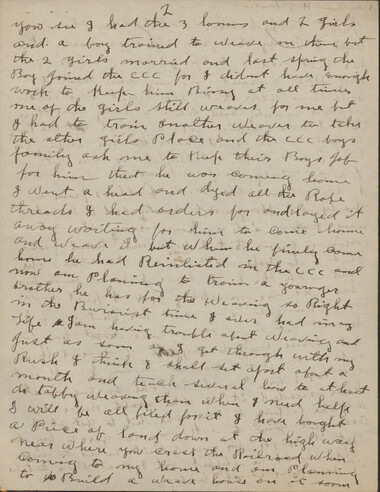 2
you see I had the 3 looms and 2 girls
and a boy trained to weave in them but
the 2 girls married and last spring the
Boy Joined the CCC for I didnt have enough
work to Keep him Bussy at all times
one of the girls still weaves for me but
I had to train another weaver to take
the other girls Place and the CCC boys
family ask me to Keep their Boys Job
for him that he was coming home
I went a head and dyed all the Rope
threads I had orders for and layed it
away waiting for him to come home
and weave it but when he finely come
home he had Reinlisted in the CCC and
now am Planning to train a younger
Brother he has for the weaving so Right
in the Buisiest time I ever had in my
life I am having trouble about weaving and
Just as soon as I get through with my
Rush I think I shall set apart about a
month and teach several how to at least
do tabby weaving then when I need help
I will be all fixed for it I have bought
a Piece of land down at the high way
near where you cross the Railroad when
coming to my home and am Planning
to Build a weave house on it soon